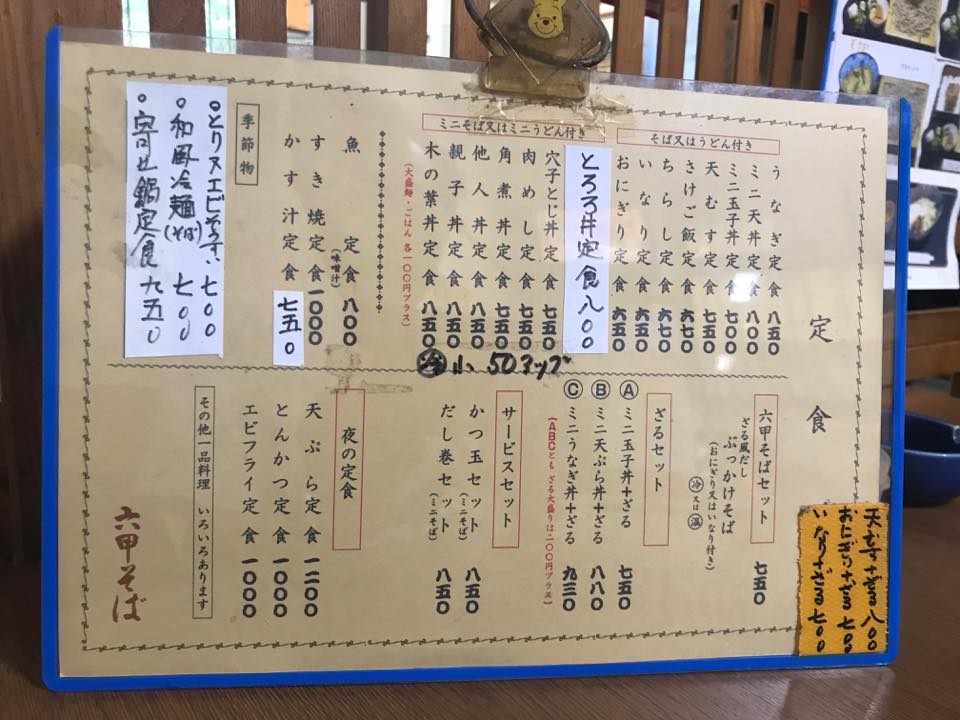 定食
そば又はうどん付き
うなぎ定食 八五〇
ミニ天丼定食 八〇〇
ミニ玉子丼定食 七〇〇
天むす定食 七五〇
さけご飯定食 六七〇
ちらし定食 六七〇
いなり定食 六五〇
おにぎり定食 六五〇
とろろ丼定食 八〇〇
ミニそば又はミニうどん付き
穴子とじ丼定食 七五〇
肉めし定食 七五〇
角煮丼定食 八五〇
他人丼定食 八五〇
親子丼定食 七五〇
木の葉丼定食 八五〇
(大盛麺・ごはん 各一〇〇円プラス)
魚定食 八〇〇
すき焼定食(味噌汁) 一〇〇〇
かす汁定食 七五〇
季節物
とりヌエビそうすい 七〇〇
和風冷麺(そば) 七〇〇
寄せ鍋定食 九五〇
冷 小 50アップ
六甲そばセット
ざる風だし
ぶっかけそば 七五〇
(おにぎり又はいなり付き)
冷又は温
ざるセット
Ⓐミニ玉子丼+ざる 七五〇
Ⓑミニ天ぷら丼+ざる 八八〇
Ⓒミニうなぎ丼+ざる 九三〇
(ABCとも ざる大盛りは二〇〇円プラス)
サービスセット
かつ玉セット(ミニそば) 八五〇
だし巻セット(ミニそば) 八五〇
夜の定食
天ぷら定食 一二〇〇
とんかつ定食 一〇〇〇
エビフライ定食 一〇〇〇
その他一品料理 いろいろあります
六甲そば
天むす+ざる 八〇〇
おにぎり+ざる 七〇〇
いなり+ざる 七〇〇